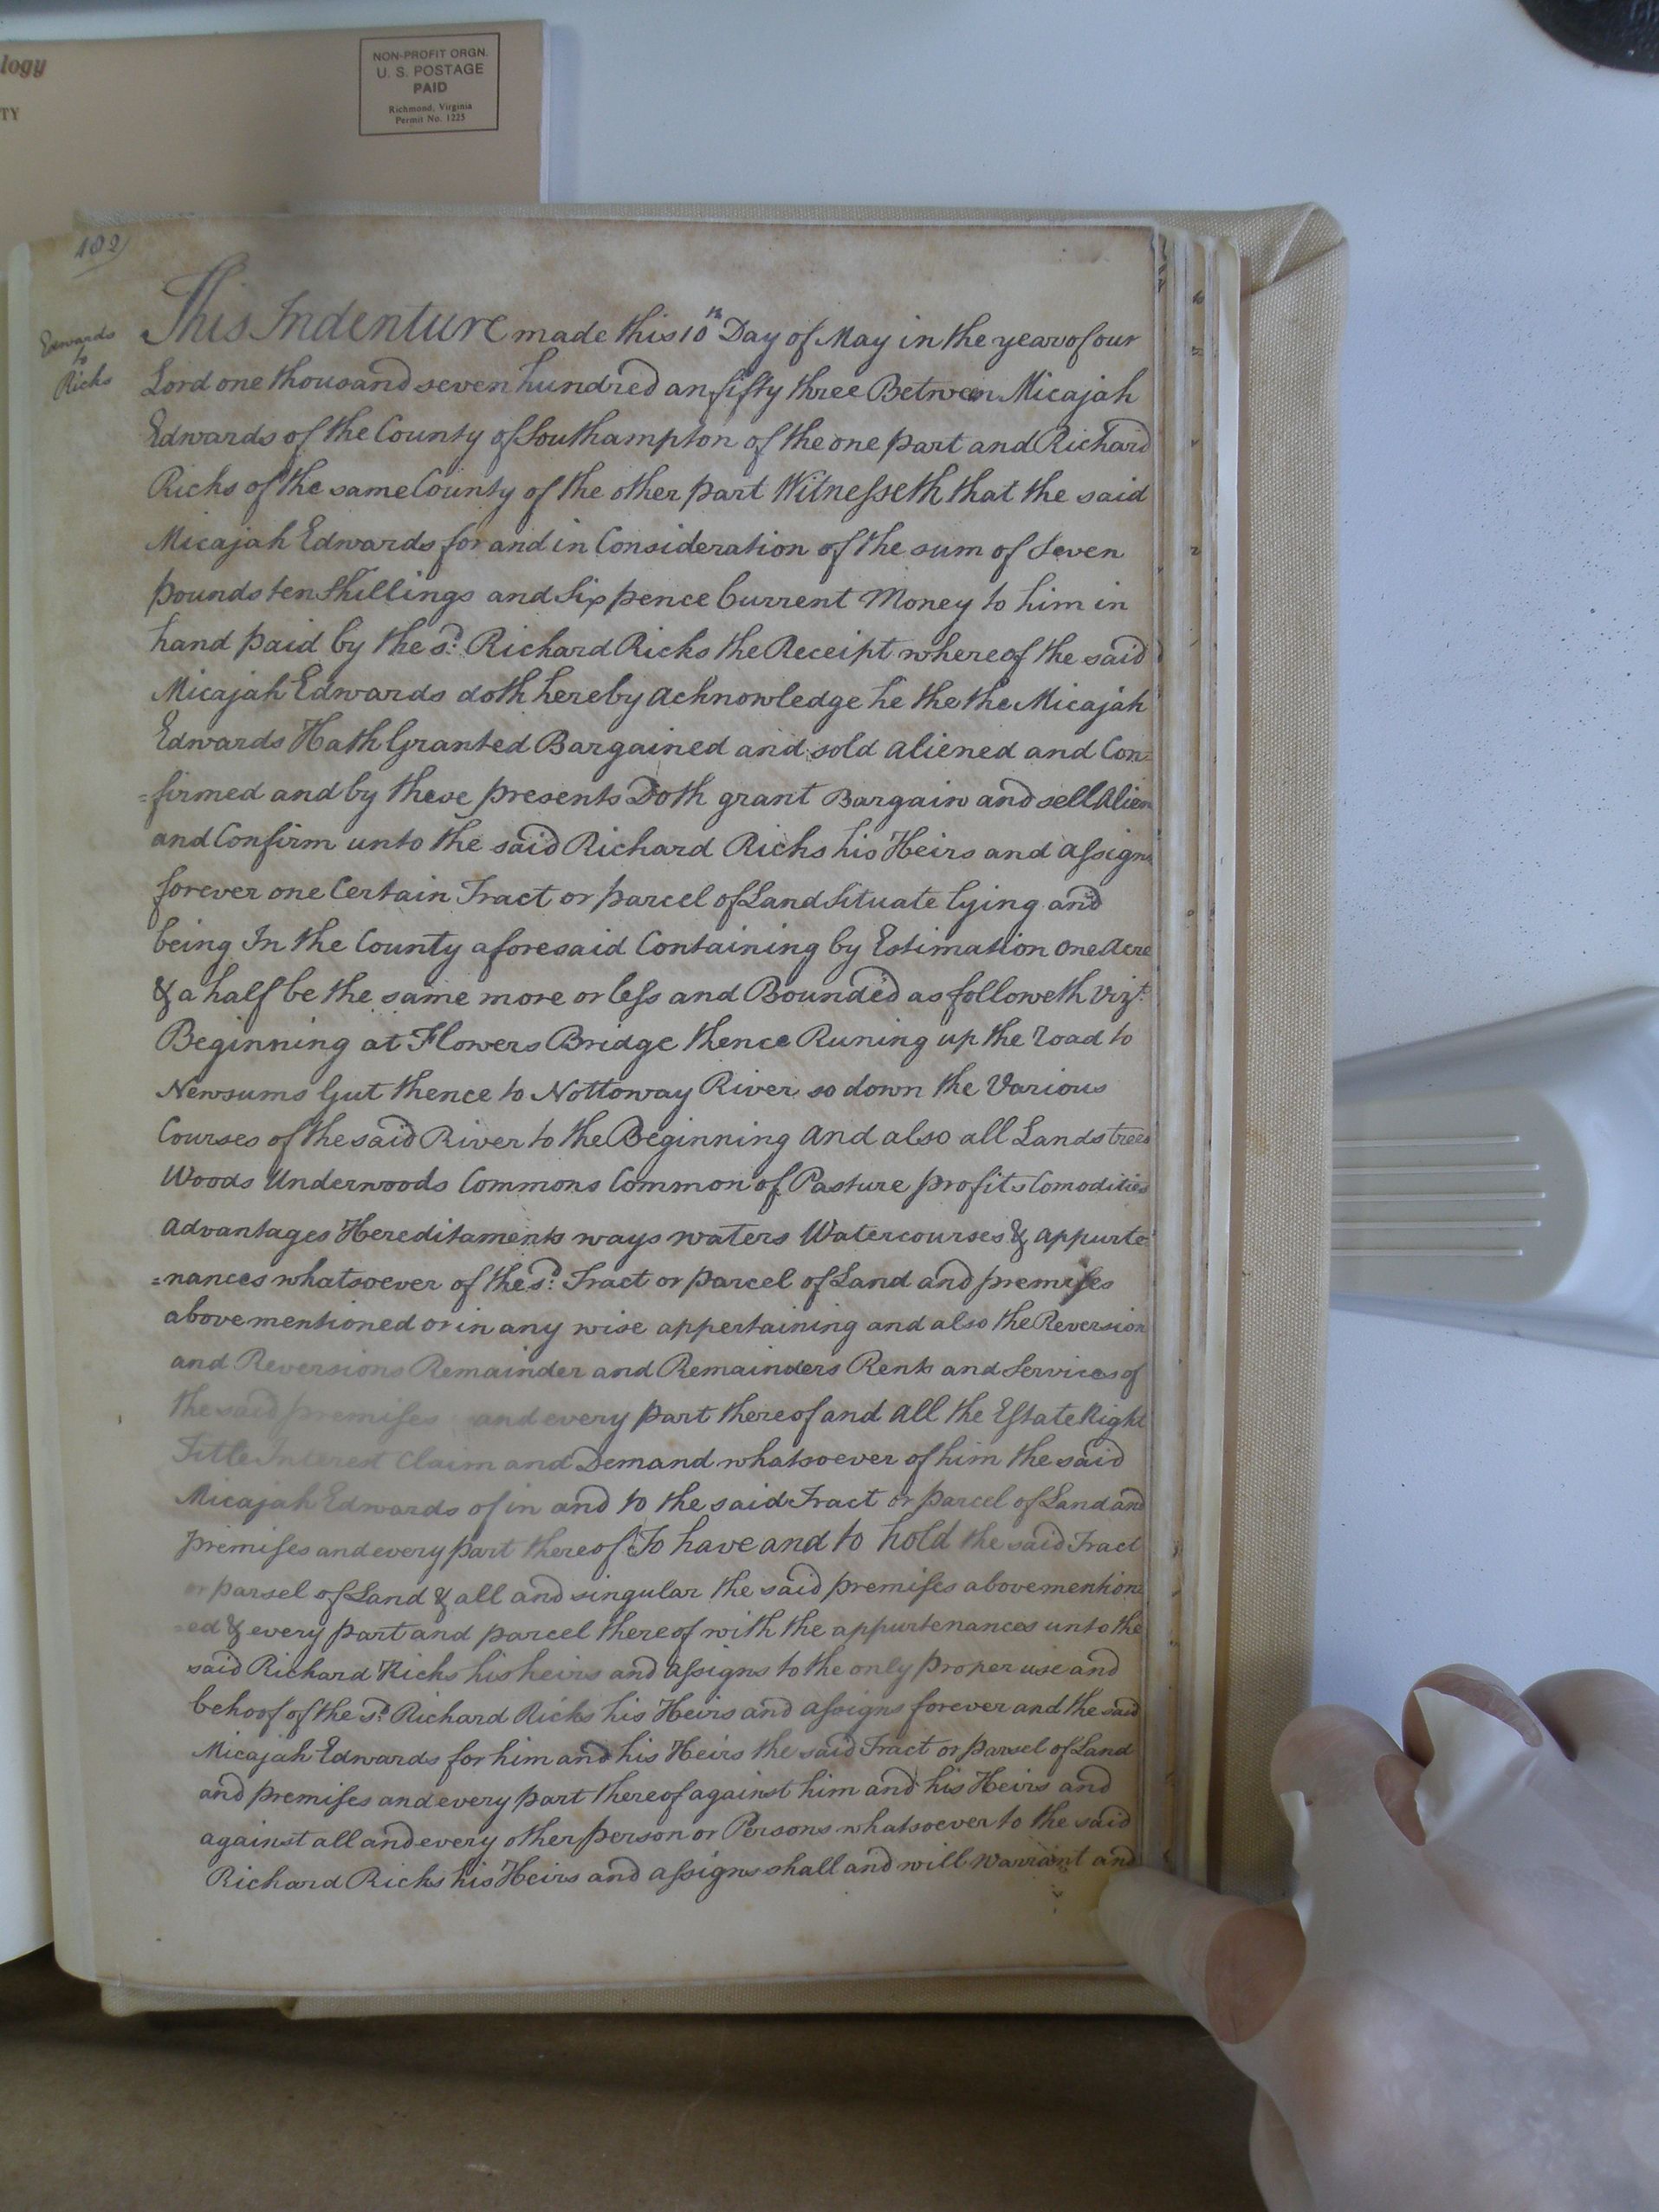 logy
TY
NON-PROFIT ORGN.
U. S. POSTAGE
PAID
Richmond, Virginia
Permit No. 1225
102
Edwards
to
Ricks
This Indenture made this 10th Day of May in the year of our
Lord one thousand seven hundred an fifty three Between Micajah
Edwards of the County of Southampton of the one part and Richard
Ricks of the same County of the other part Witnesseth that the said
Micajah Edwards for and in Consideration of the sum of Seven
pounds ten Shillings and Six pence Current Money to him in
hand paid by the sd: Richard Ricks the Receipt whereof the said
Micajah Edwards doth hereby acknowledge he the the Micajah
Edwards Hath Granted Bargained and sold aliened and Con=
=firmed and by these presents Doth grant Bargain and sell Alien
and Confirm unto the said Richard Ricks his Heirs and assigns
forever one Certain Tract or parcel of Land Situate lying and
being In the County aforesaid Containing by Estimation one Acre
& a half be the same more or less and Bounded as followeth Vizt.
Beginning at Flowers Bridge thence Runing up the road to
Newsums Gut thence to Nottoway River so down the Various
Courses of the said River to the Beginning and also all Lands trees
Woods Underwoods Commons Common of Pasture profits Comodities
advantages Hereditaments ways waters Watercourses & appurte=
=nances whatsoever of the sd: Tract or parcel of Land and premises
above mentioned or in any wise appertaining and also the Reversion
and Reversions Remainder and Remainders Rents and Services of
the said premises and every part thereof and all the Estate Right
Title Interest Claim and Demand whatsoever of him the said
Micajah Edwards of in and to the said Tract or parcel of Land and
premises and every part thereof To have and to hold the said Tract
or parsel of Land & all and singular the said premises abovemention
=ed & every part and parcel thereof with the appurtenances unto the
said Richard Ricks his heirs and assigns to the only proper use and
behoof of the sd: Richard Ricks his Heirs and assigns forever and the said
Micajah Edwards for him and his Heirs the said Tract or parsel of Land
and premises and every part thereof against him and his Heirs and
against all and every other person or Persons whatsoever to the said
Richard Ricks his Heirs and assigns shall and will warrant and